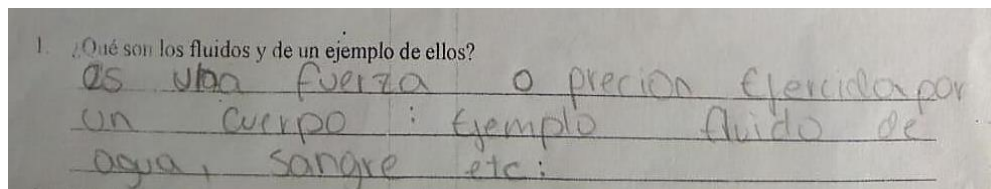 1. ¿Qué son los fluidos y de un ejemplo de ellos?
es una fuerza o precion Ejercida por
un cuerpo : Ejemplo fluido de
agua, sangre etc: